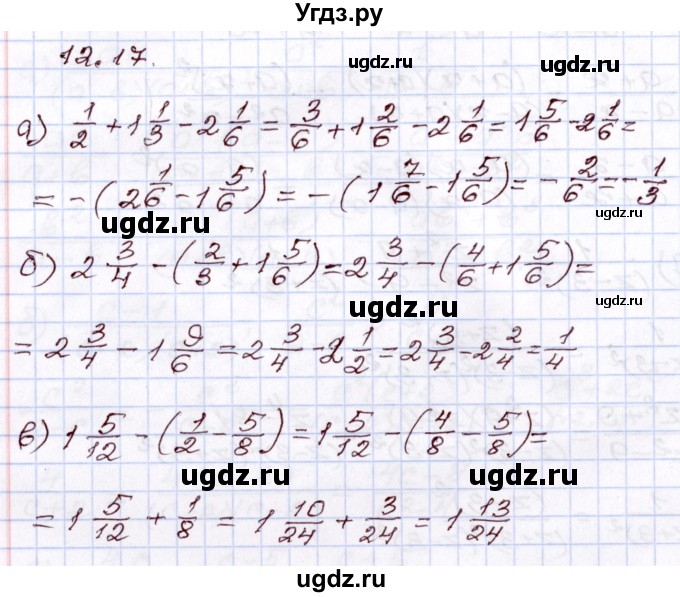 Угдз.ру
12.17.
ugdz.ru ugdz.ru
а) 1/2 + 1 1/3 - 2 1/6 = 3/6 + 1 2/6 - 2 1/6 = 1 5/6 - 2 1/6 =
= -(2 1/6 - 1 5/6) = -(1 7/6 - 1 5/6) = - 2/6 = - 1/3
ugdz.ru ugdz.ru
б) 2 3/4 - (2/3 + 1 5/6) = 2 3/4 - (4/6 + 1 5/6) =
ugdz.ru
= 2 3/4 - 1 9/6 = 2 3/4 - 2 1/2 = 2 3/4 - 2 2/4 = 1/4
ugdz.ru
в) 1 5/12 - (1/2 - 5/8) = 1 5/12 - (4/8 - 5/8) =
ugdz.ru ugdz.ru
= 1 5/12 + 1/8 = 1 10/24 + 3/24 = 1 13/24
ugdz.ru
ugdz.ru